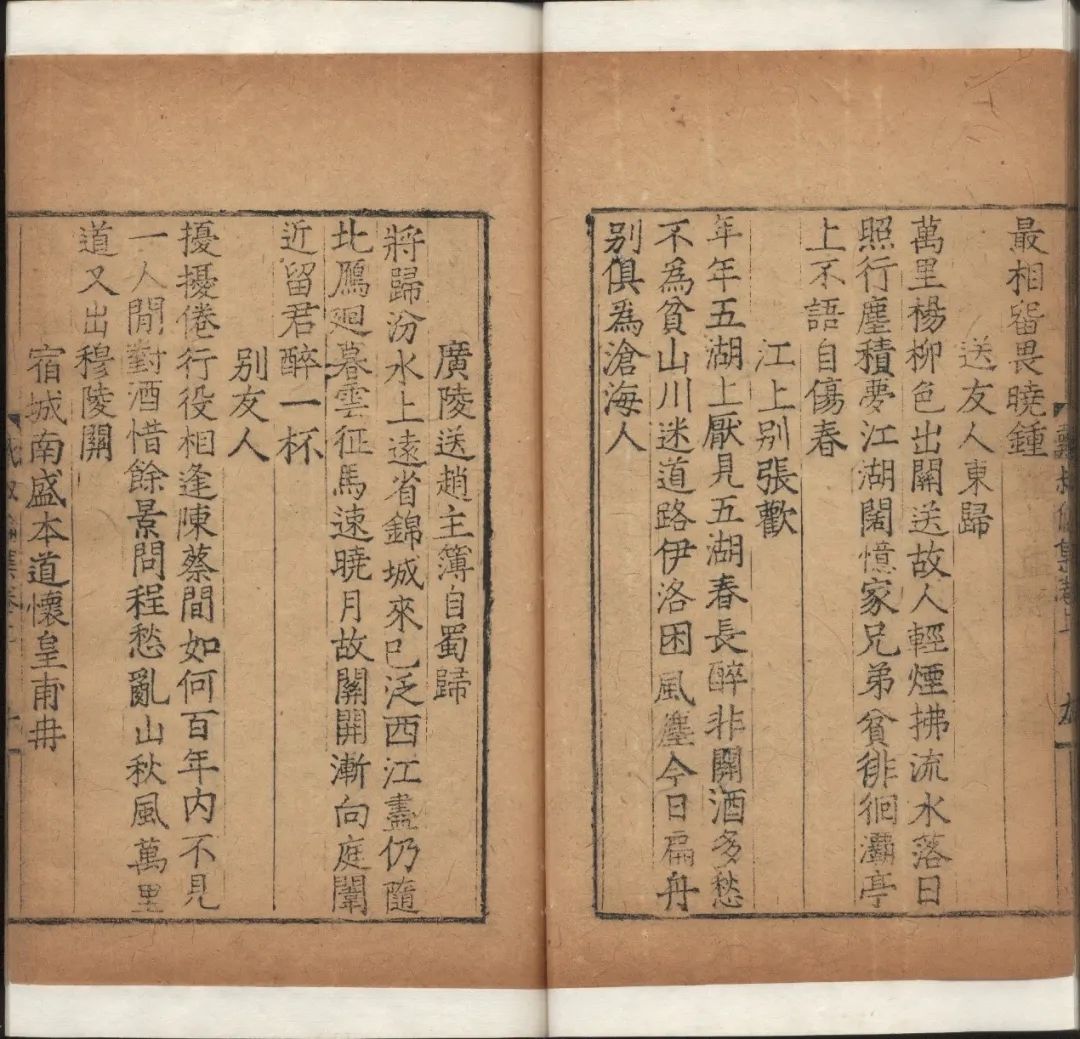 最相畱畏曉鍾
送友人東歸
萬里楊柳色出關送故人輕煙拂流水落日
照行塵積夢江湖闊憶家兄弟貧徘徊灞亭
上不語自傷春
江上别張歡
年年五湖上厭見五湖春長醉非關酒多愁
不為貧山川迷道路伊洛困風塵今日扁舟
别俱為滄海人
廣陵送趙主簿自蜀歸
將歸汾水上遠省錦城來已泛西江盡仍隨
北鴈廻暮雲征馬速曉月故關開漸向庭闈
近留君醉一杯
别友人
擾擾倦行役相逢陳蔡間如何百年内不見
一人閒對酒惜餘景問程愁亂山秋風萬里
道又出穆陵關
宿城南盛本道懷皇甫冉